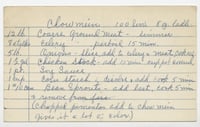 Chow mein 100 1 cup ladle
12 lb Coarse Ground Meat - simmer
8 stalks Celery parboil 15 min.
5 lb Onions - slice add to celery & meat, cook
Chicken Stock - add 15 min.
1 pt Soy Sauce
1 lb Corn Starch, dissolve, add cook 5 min
Bean Sprouts - add last, cook 5 min
& remove from fire.
(Chopped pimento added to chow mein
gives it a lot of color)